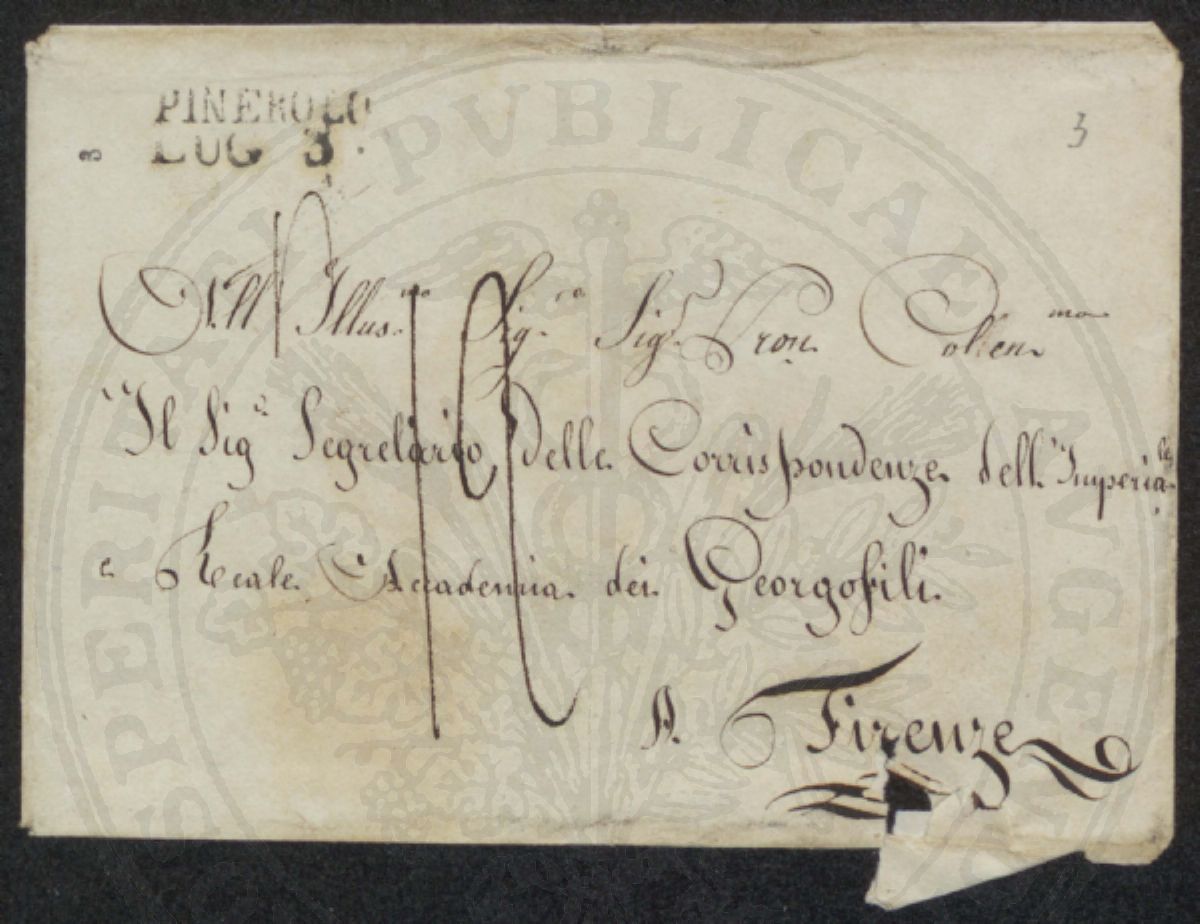 PINEROLO
LUG 3.
3
All' Illus.mo Sig.re Sig.r Pron. Colen.mo
Il Sig.r Segretario delle Corrispondenze dell' Imperiale
e Reale Accademia dei Georgofili.
A. Firenze
PVBLICAE
PROSPERITATI
AVGENDAE